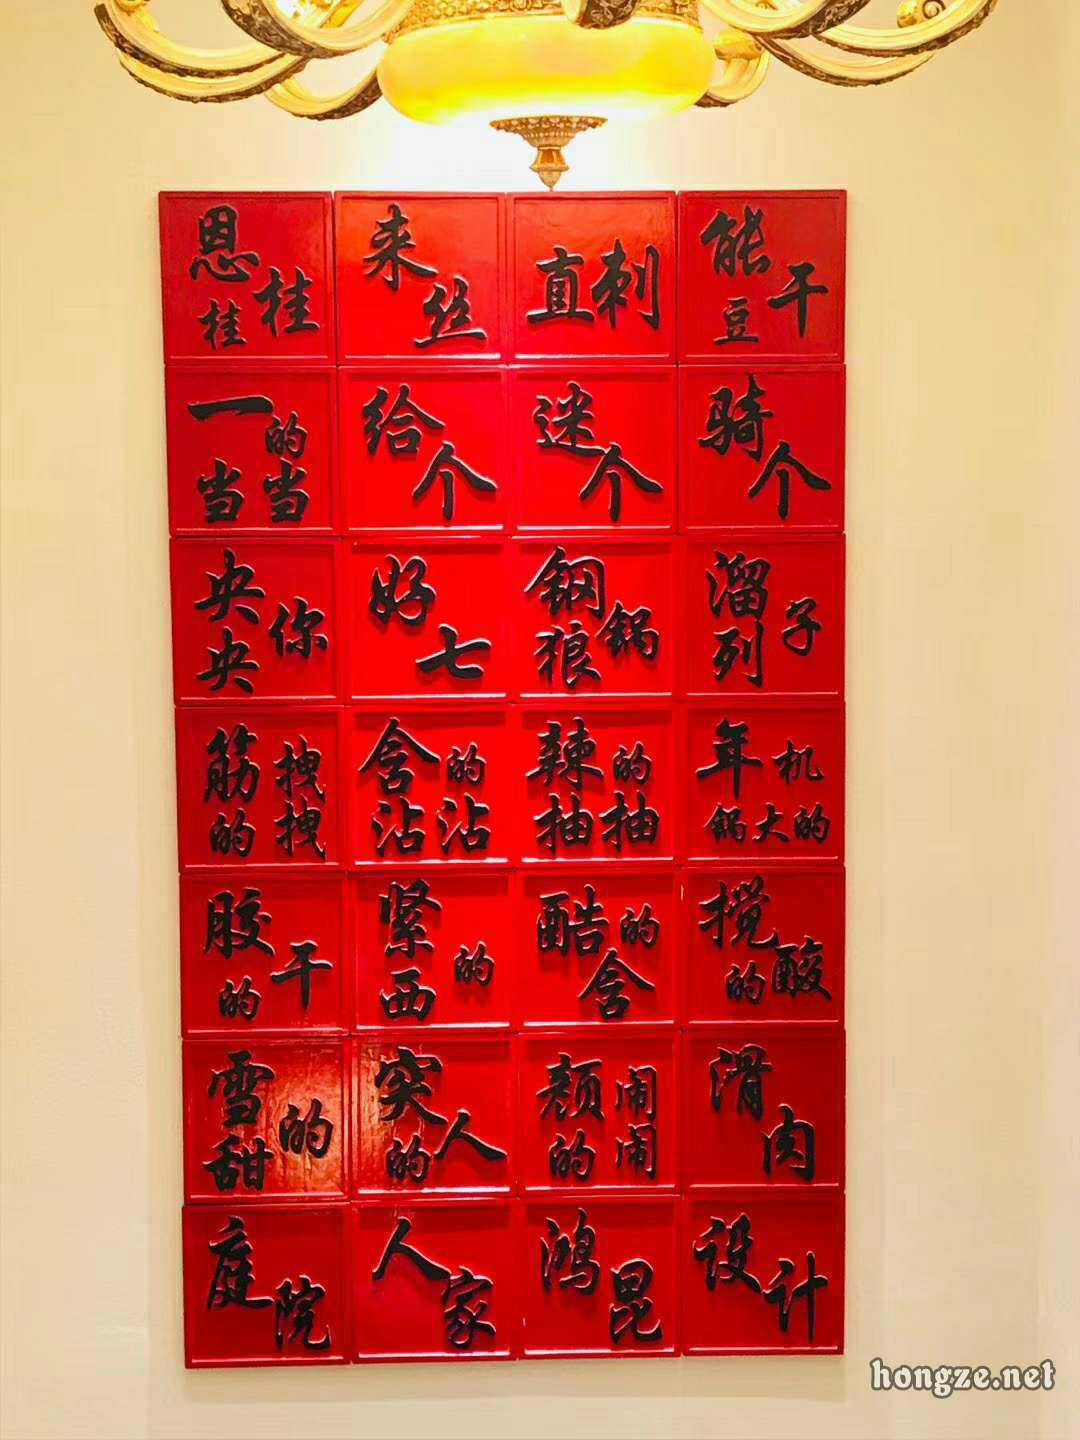 恩桂桂
来丝
直刺
能豆干
一当的当
给个
迷个
骑个
央央你
好七
钢狼锅
溜列子
筋的拽拽
含沾的沾
辣抽的抽
年机锅大的
胶的干
紧西的
酷的含
搅的酸
雪甜的
突的人
颜的闹闹
滑肉
庭院
人家
鸿昆
设计
hongze.net